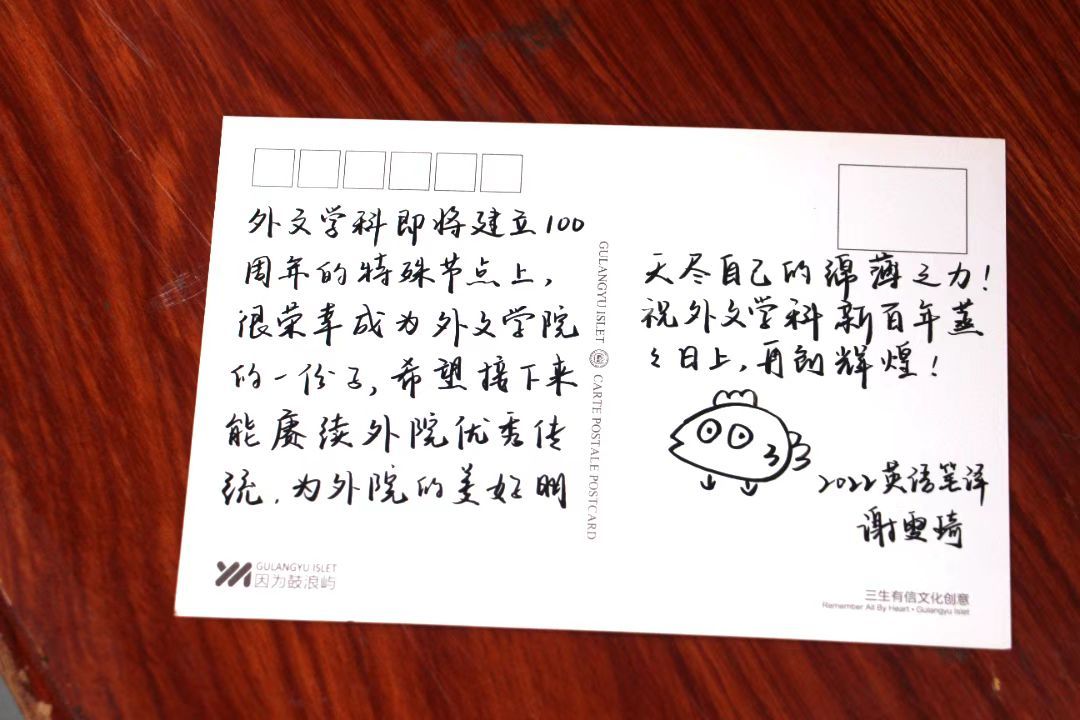 外文学科即将建立100
周年的特殊节点上，
很荣幸成为外文学院
的一份子，希望接下来
能赓续外院优秀传
统，为外院的美好明
天尽自己的绵薄之力！
祝外文学科新百年蒸
々日上，再创辉煌！
2022英语笔译
谢雯琦
GULANGYU ISLET
CARTE POSTALE POSTCARD
GULANGYU ISLET
因为鼓浪屿
三生有信文化创意
Remember All By Heart • Gulangyu Islet